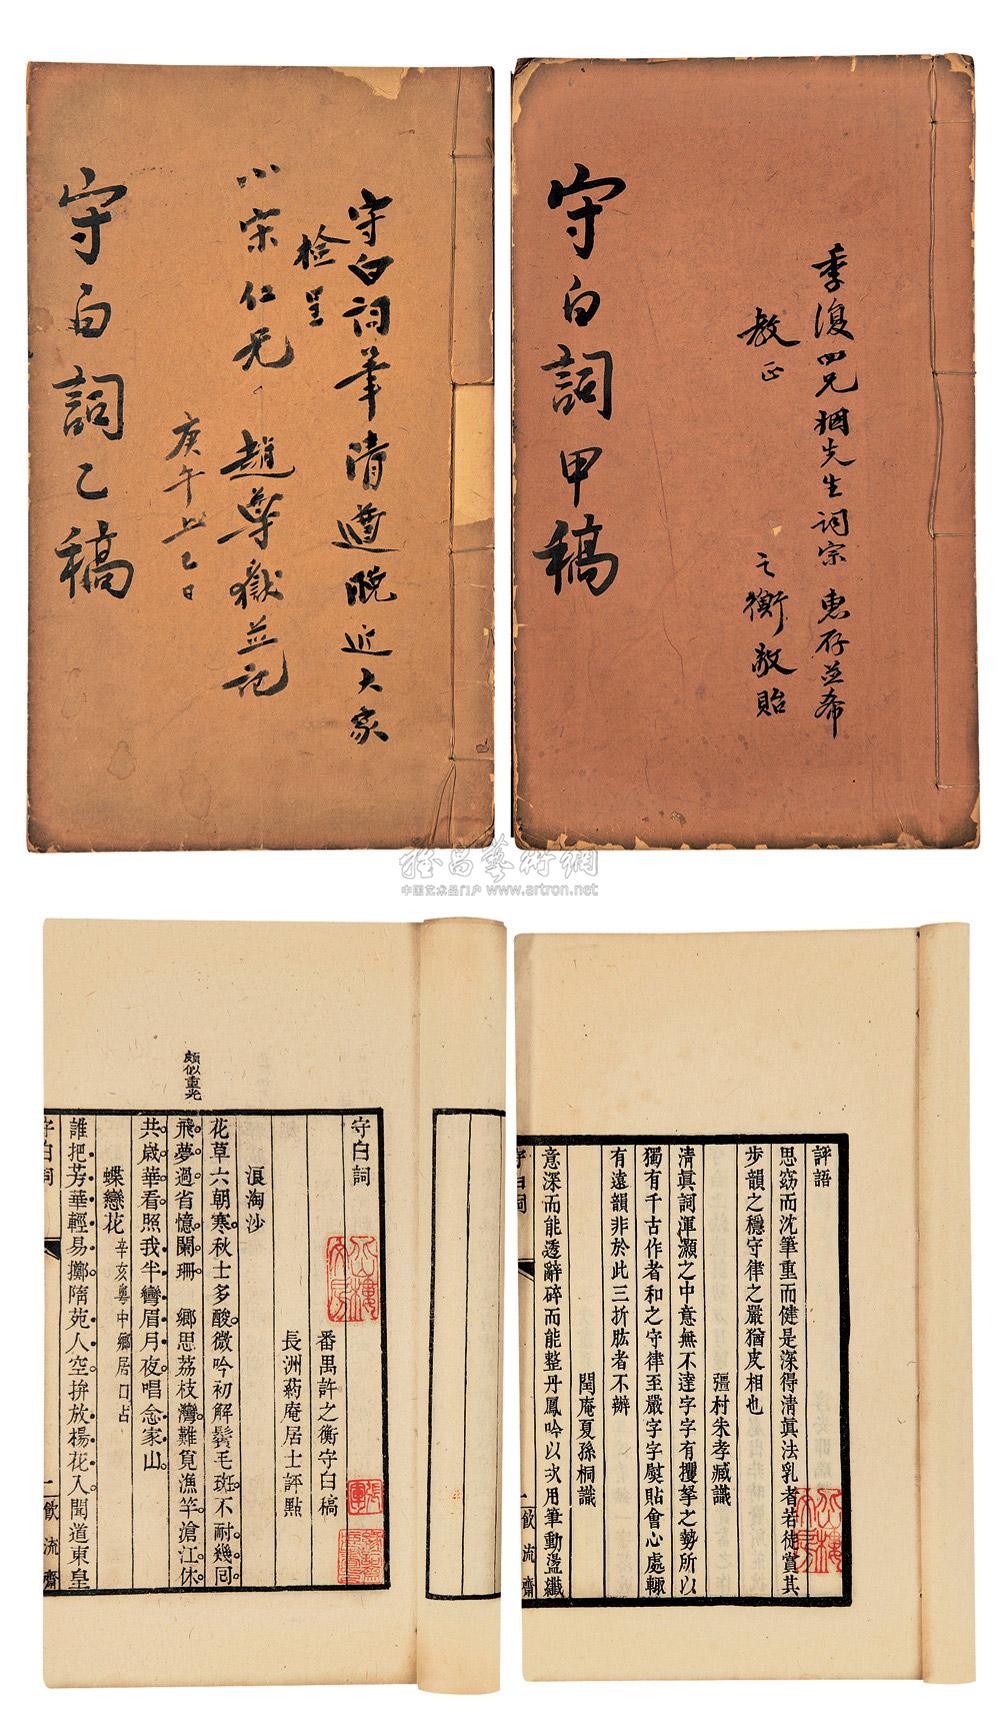 守白詞筆清遒晚近大家
檢呈
小宋仁兄 趙尊嶽並記
庚午上巳日
守白詞乙稿
季復四兄姻先生詞宗 惠存並希
教正
之衡敬貽
守白詞甲稿
中国艺术品门户 www.artron.net
頗似重光
守白詞
番禺許之衡守白稿
長洲葯庵居士評點
浪淘沙
花草六朝寒。秋士多酸。微吟初解鬢毛斑。不耐幾回
飛夢過。省憶闌珊。 鄉思荔枝灣。難覓漁竿。滄江休
共歲華看。照我半彎眉月夜。唱念家山。
蝶戀花 辛亥粵中鄉居口占
誰把芳華輕易擲。隋苑人空。拚放楊花入。聞道東皇
守白詞
一 飲流齋
評語
思窈而沈筆重而健是深得清眞法乳者若徒賞其
步韻之穩守律之嚴猶皮相也
彊村朱孝臧識
清眞詞渾灝之中意無不達字字有攫拏之勢所以
獨有千古作者和之守律至嚴字字熨貼會心處輒
有遠韻非於此三折肱者不辦
閏庵夏孫桐識
意深而能透辭碎而能整丹鳳吟以次用筆動盪纖
守白詞
一 飲流齋